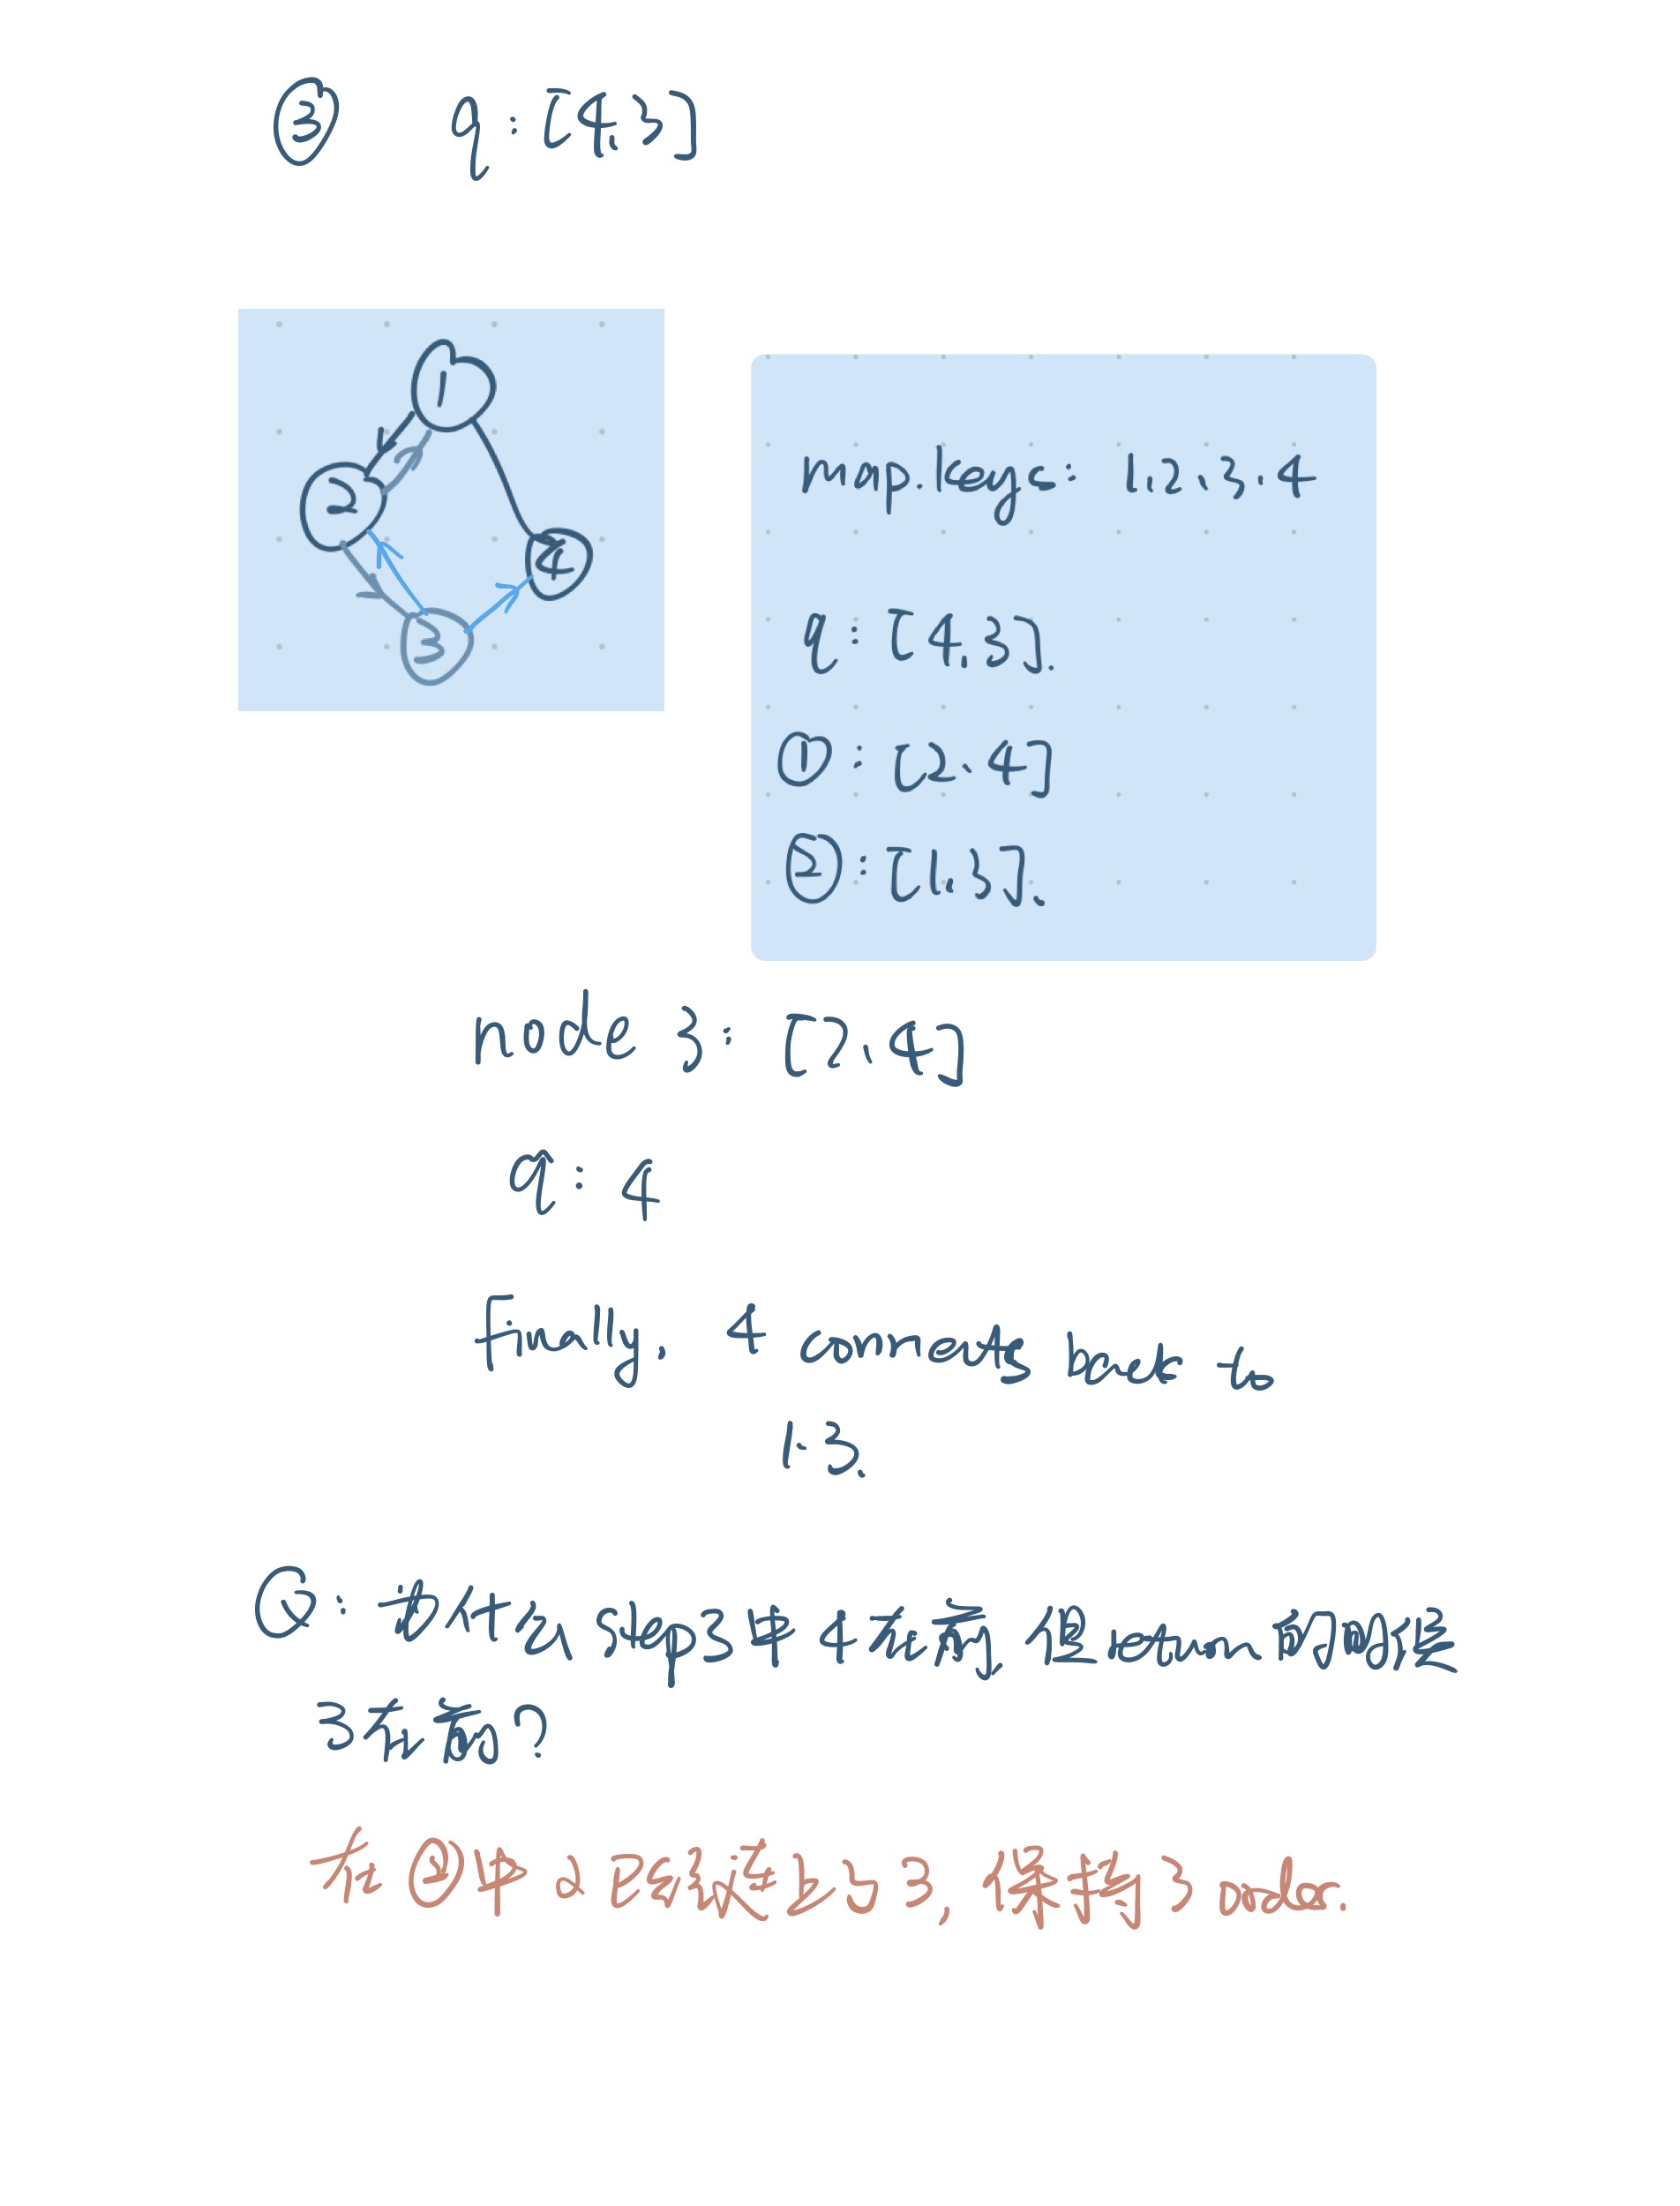 ③ q:[4,3]
1
2
4
3
map.keys: 1.2.3.4
q:[4,3].
①:[2、4]
②:[1,3]、
node 3: [2、4]
q: 4
Finally, 4 connects back to
1、3、
Q: 为什么 step3中 4在前, 但 return 的时候是
3在前?
在②中 2已经连上了3, 保持3 node.